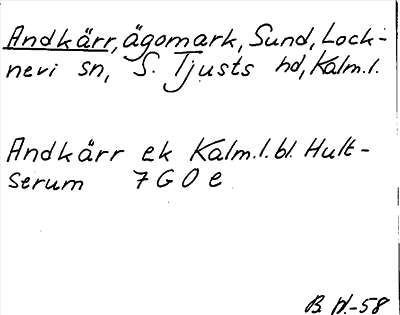 Andkärr, ägomark, Sund, Lock-
nevi sn, S. Tjusts hd, Kalm.l.
Andkärr ek Kalm.l.bl. Hult-
serum 7 G O e
B. N.-58